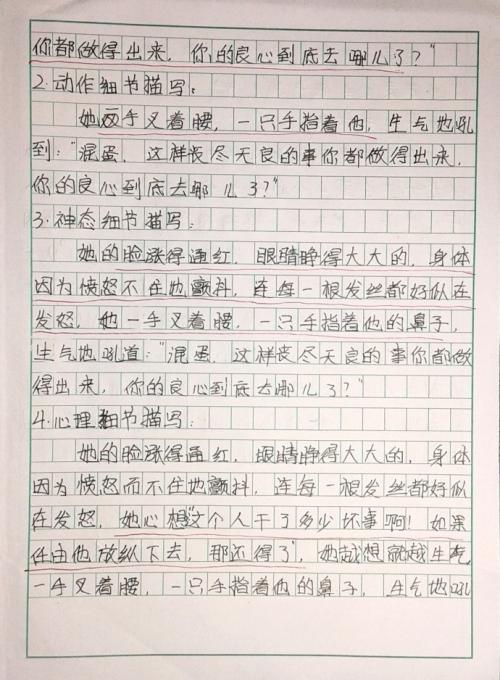 你都做得出来，你的良心到底去哪儿了？”
2.动作细节描写：
她双手叉着腰，一只手指着他，生气地吼
到：“混蛋，这样丧尽天良的事你都做得出来，
你的良心到底去哪儿了？”
3.神态细节描写：
她的脸涨得通红，眼睛睁得大大的，身体
因为愤怒不住地颤抖，连每一根发丝都好似在
发怒，她一手叉着腰，一只手指着他的鼻子，
生气地吼道：“混蛋，这样丧尽天良的事你都做
得出来，你的良心到底去哪儿了？”
4.心理细节描写：
她的脸涨得通红，眼睛睁得大大的，身体
因为愤怒而不住地颤抖，连每一根发丝都好似
在发怒，她心想“这个人干了多少坏事啊！如果
任由他放纵下去，那还得了”，她越想就越生气，
一手叉着腰，一只手指着他的鼻子，生气地吼